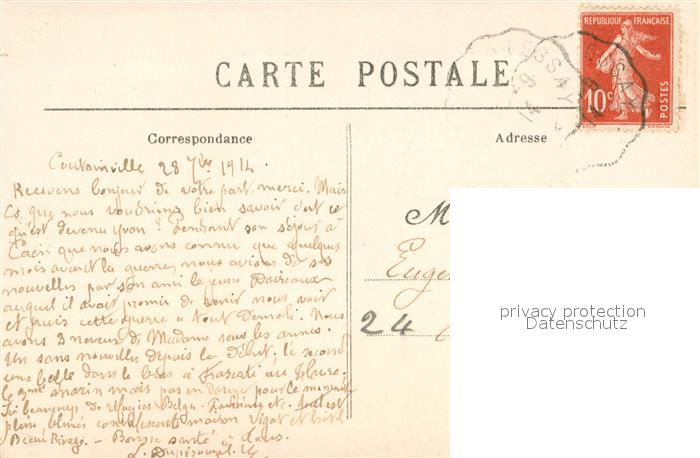 REPUBLIQUE FRANÇAISE
10c
POSTES
LESSAY
CARTE POSTALE
Correspondance
Adresse
Coutainville 28 7bre 1914
Recevons bonjour de votre part merci. Mais
ce que nous voudrions bien savoir c'est ce
qu'est devenu Yvon? Pendant son séjour à
Caen que nous avons connu que quelques
mois avant la guerre, nous avions de ses
nouvelles par son ami le jeune
auquel il avait promis de venir nous voir
et puis cette guerre a tout démoli. Nous
avons 3 neveux de Madame sous les armes.
Un sans nouvelles depuis le début. le second
une balle dans le bras à Frascati au Havre.
le 3me marin mais pas en danger pour le moment
Ici beaucoup de réfugiés Belges - Parisiens etc. tout est
plein, blessés convalescents maison Vigot et hôtel
Beau Rivage. - Bonne santé à tous.
M
Euge
24
privacy protection
Datenschutz